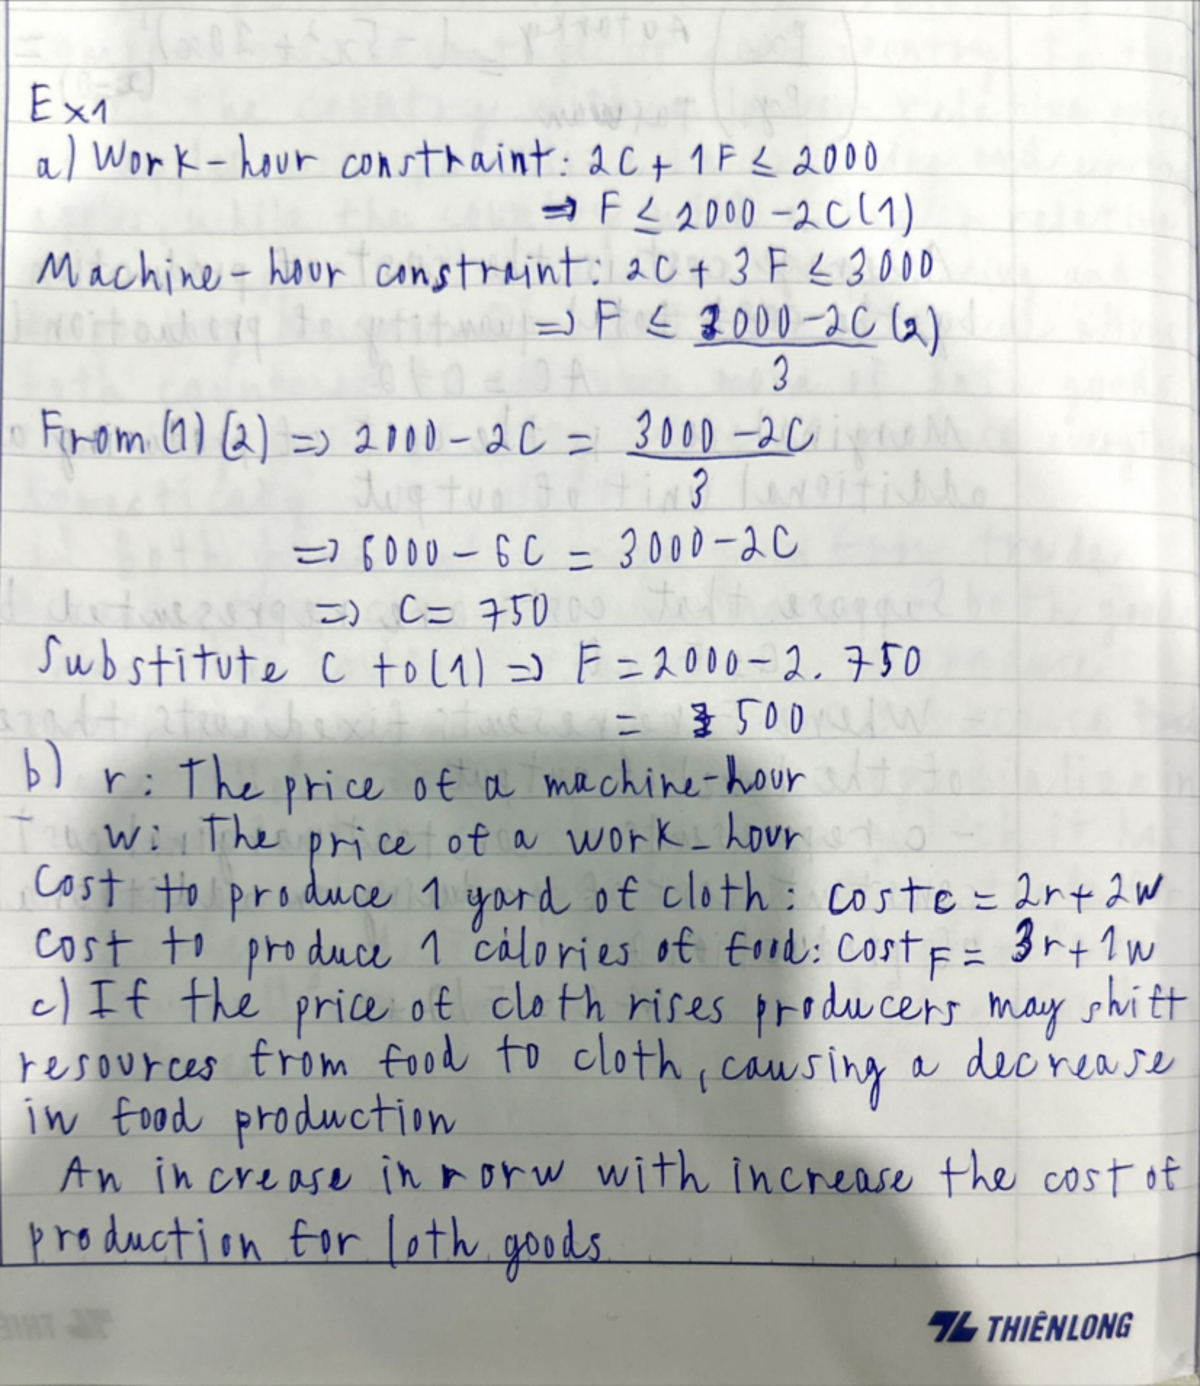 Ex1
a) Work-hour constraint: 2C + 1F ≤ 2000
⇒ F ≤ 2000 - 2C (1)
Machine-hour constraint: 2C + 3F ≤ 3000
⇒ F ≤ 3000 - 2C (2)
3
From (1) (2) ⇒ 2000 - 2C = 3000 - 2C
3
⇒ 6000 - 6C = 3000 - 2C
⇒ C = 750
Substitute C to (1) ⇒ F = 2000 - 2. 750
= 500
b) r: The price of a machine-hour
w: The price of a work-hour
Cost to produce 1 yard of cloth: cost C = 2r + 2w
Cost to produce 1 calories of food: cost F = 3r + 1w
c) If the price of cloth rises producers may shift
resources from food to cloth, causing a decrease
in food production
An increase in r or w with increase the cost of
production for loth goods
THIÊN LONG